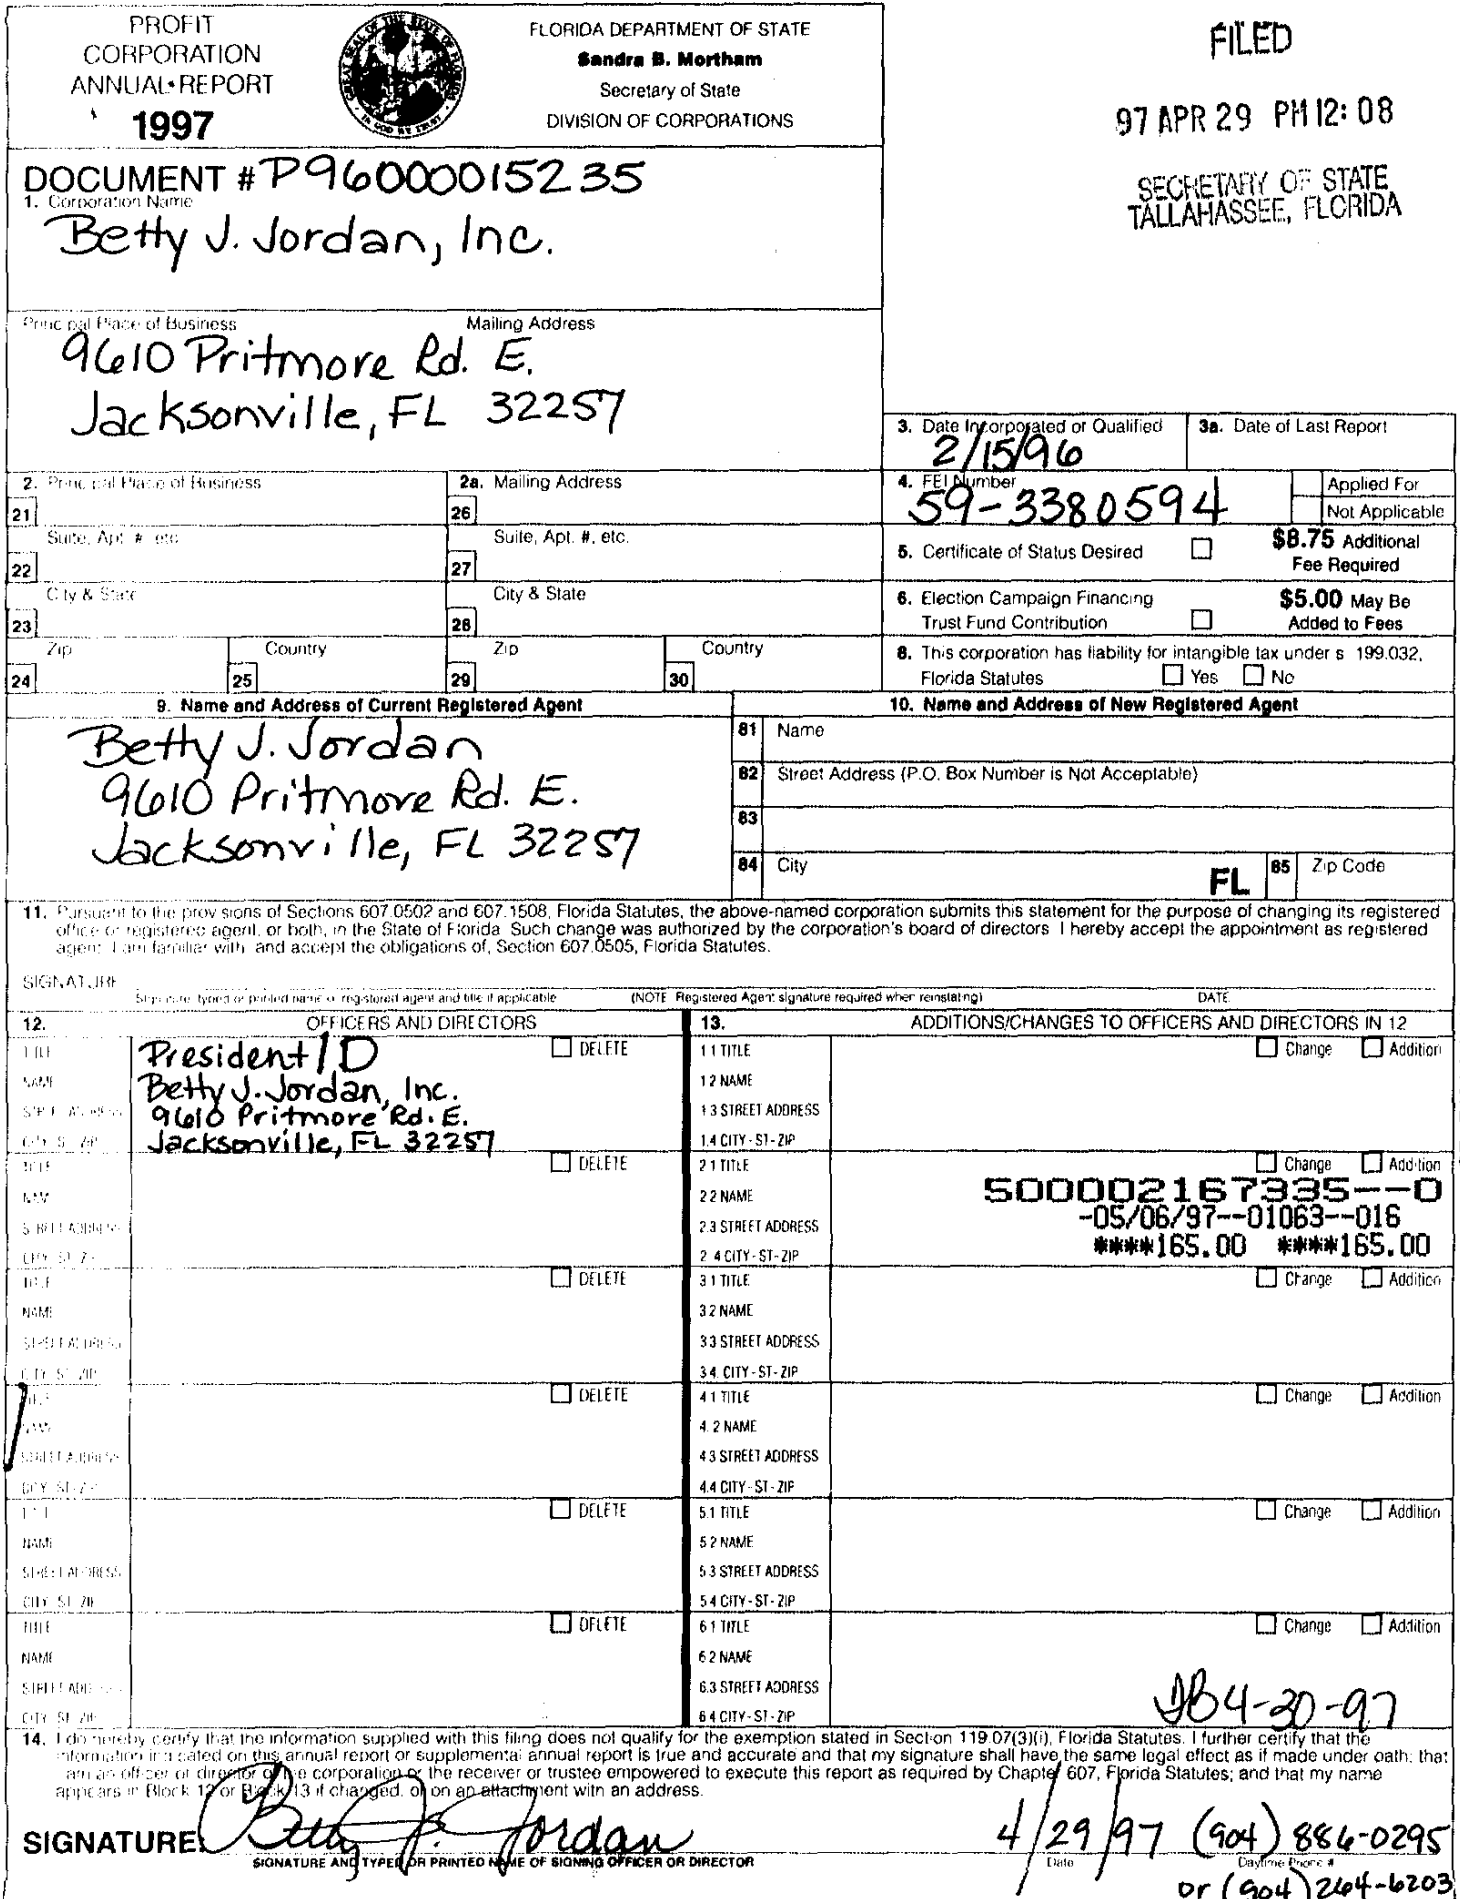 PROFIT
CORPORATION
ANNUAL REPORT
1997
GREAT SEAL OF THE STATE OF FLORIDA
IN GOD WE TRUST
FLORIDA DEPARTMENT OF STATE
Sandra B. Mortham
Secretary of State
DIVISION OF CORPORATIONS
FILED
97 APR 29 PM 12:08
SECRETARY OF STATE
TALLAHASSEE, FLORIDA
DOCUMENT # P96000015235
1. Corporation Name
Betty J. Jordan, Inc.
Principal Place of Business Mailing Address
9610 Pritmore Rd. E.
Jacksonville, FL 32257
3. Date Incorporated or Qualified
2/15/96
3a. Date of Last Report
2. Principal Place of Business
21
Suite, Apt. #, etc.
22
City & State
23
Zip
24
Country
25
2a. Mailing Address
26
Suite, Apt. #, etc.
27
City & State
28
Zip
29
Country
30
4. FEI Number
59-3380594
Applied For
Not Applicable
5. Certificate of Status Desired
$8.75 Additional
Fee Required
6. Election Campaign Financing
Trust Fund Contribution
$5.00 May Be
Added to Fees
8. This corporation has liability for intangible tax under s 199.032,
Florida Statutes Yes No
9. Name and Address of Current Registered Agent
Betty J. Jordan
9610 Pritmore Rd. E.
Jacksonville, FL 32257
10. Name and Address of New Registered Agent
81 Name
82 Street Address (P.O. Box Number is Not Acceptable)
83
84 City FL 85 Zip Code
11. Pursuant to the provisions of Sections 607.0502 and 607.1508, Florida Statutes, the above-named corporation submits this statement for the purpose of changing its registered
office or registered agent, or both, in the State of Florida. Such change was authorized by the corporation's board of directors. I hereby accept the appointment as registered
agent. I am familiar with, and accept the obligations of, Section 607.0505, Florida Statutes.
SIGNATURE
Signature, typed or printed name of registered agent and title if applicable (NOTE Registered Agent signature required when reinstating) DATE
12. OFFICERS AND DIRECTORS
TITLE President/D DELETE
NAME Betty J. Jordan, Inc.
STREET ADDRESS 9610 Pritmore Rd. E.
CITY-ST-ZIP Jacksonville, FL 32257
TITLE DELETE
NAME
STREET ADDRESS
CITY-ST-ZIP
TITLE DELETE
NAME
STREET ADDRESS
CITY-ST-ZIP
TITLE DELETE
NAME
STREET ADDRESS
CITY-ST-ZIP
TITLE DELETE
NAME
STREET ADDRESS
CITY-ST-ZIP
TITLE DELETE
NAME
STREET ADDRESS
CITY-ST-ZIP
13. ADDITIONS/CHANGES TO OFFICERS AND DIRECTORS IN 12
1.1 TITLE Change Addition
1.2 NAME
1.3 STREET ADDRESS
1.4 CITY-ST-ZIP
2.1 TITLE Change Addition
2.2 NAME 500002167335--0
-05/06/97--01063--016
2.3 STREET ADDRESS
****165.00 ****165.00
2.4 CITY-ST-ZIP
3.1 TITLE Change Addition
3.2 NAME
3.3 STREET ADDRESS
3.4. CITY-ST-ZIP
4.1 TITLE Change Addition
4.2 NAME
4.3 STREET ADDRESS
4.4 CITY-ST-ZIP
5.1 TITLE Change Addition
5.2 NAME
5.3 STREET ADDRESS
5.4 CITY-ST-ZIP
6.1 TITLE Change Addition
6.2 NAME
6.3 STREET ADDRESS
6.4 CITY-ST-ZIP
4-30-97
14. I do hereby certify that the information supplied with this filing does not qualify for the exemption stated in Section 119.07(3)(i), Florida Statutes. I further certify that the
information indicated on this annual report or supplemental annual report is true and accurate and that my signature shall have the same legal effect as if made under oath; that
I am an officer or director of the corporation or the receiver or trustee empowered to execute this report as required by Chapter 607, Florida Statutes; and that my name
appears in Block 12 or Block 13 if changed, or on an attachment with an address.
SIGNATURE: Betty J. Jordan 4/29/97 (904) 886-0295
SIGNATURE AND TYPED OR PRINTED NAME OF SIGNING OFFICER OR DIRECTOR Date Daytime Phone #
or (904) 264-6203